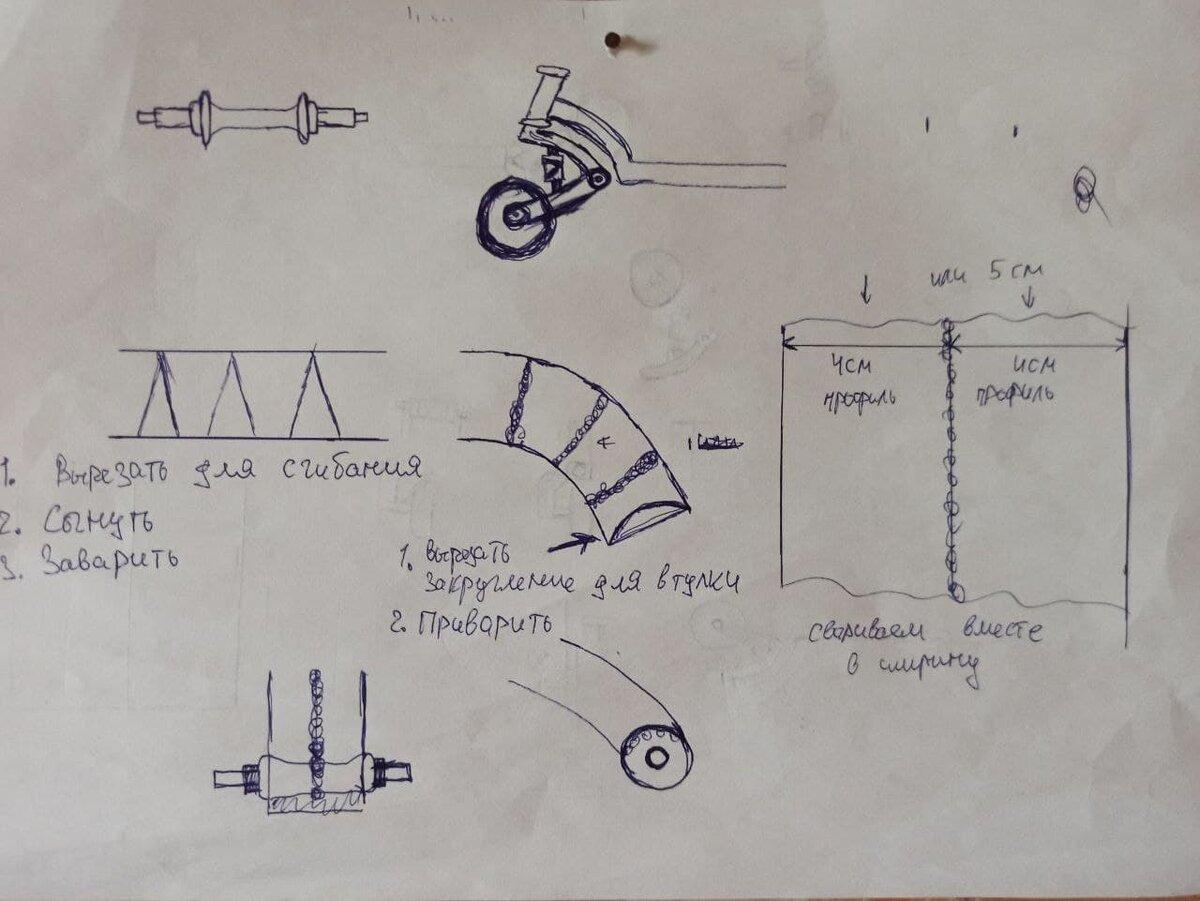 или 5 см
4см
профиль
4см
профиль
1. Вырезать для сгибания
2. Сыгнуть
3. Заварить
1. Вырезать
закругление для втулки
2. Приварить
свариваем вместе
в ширину